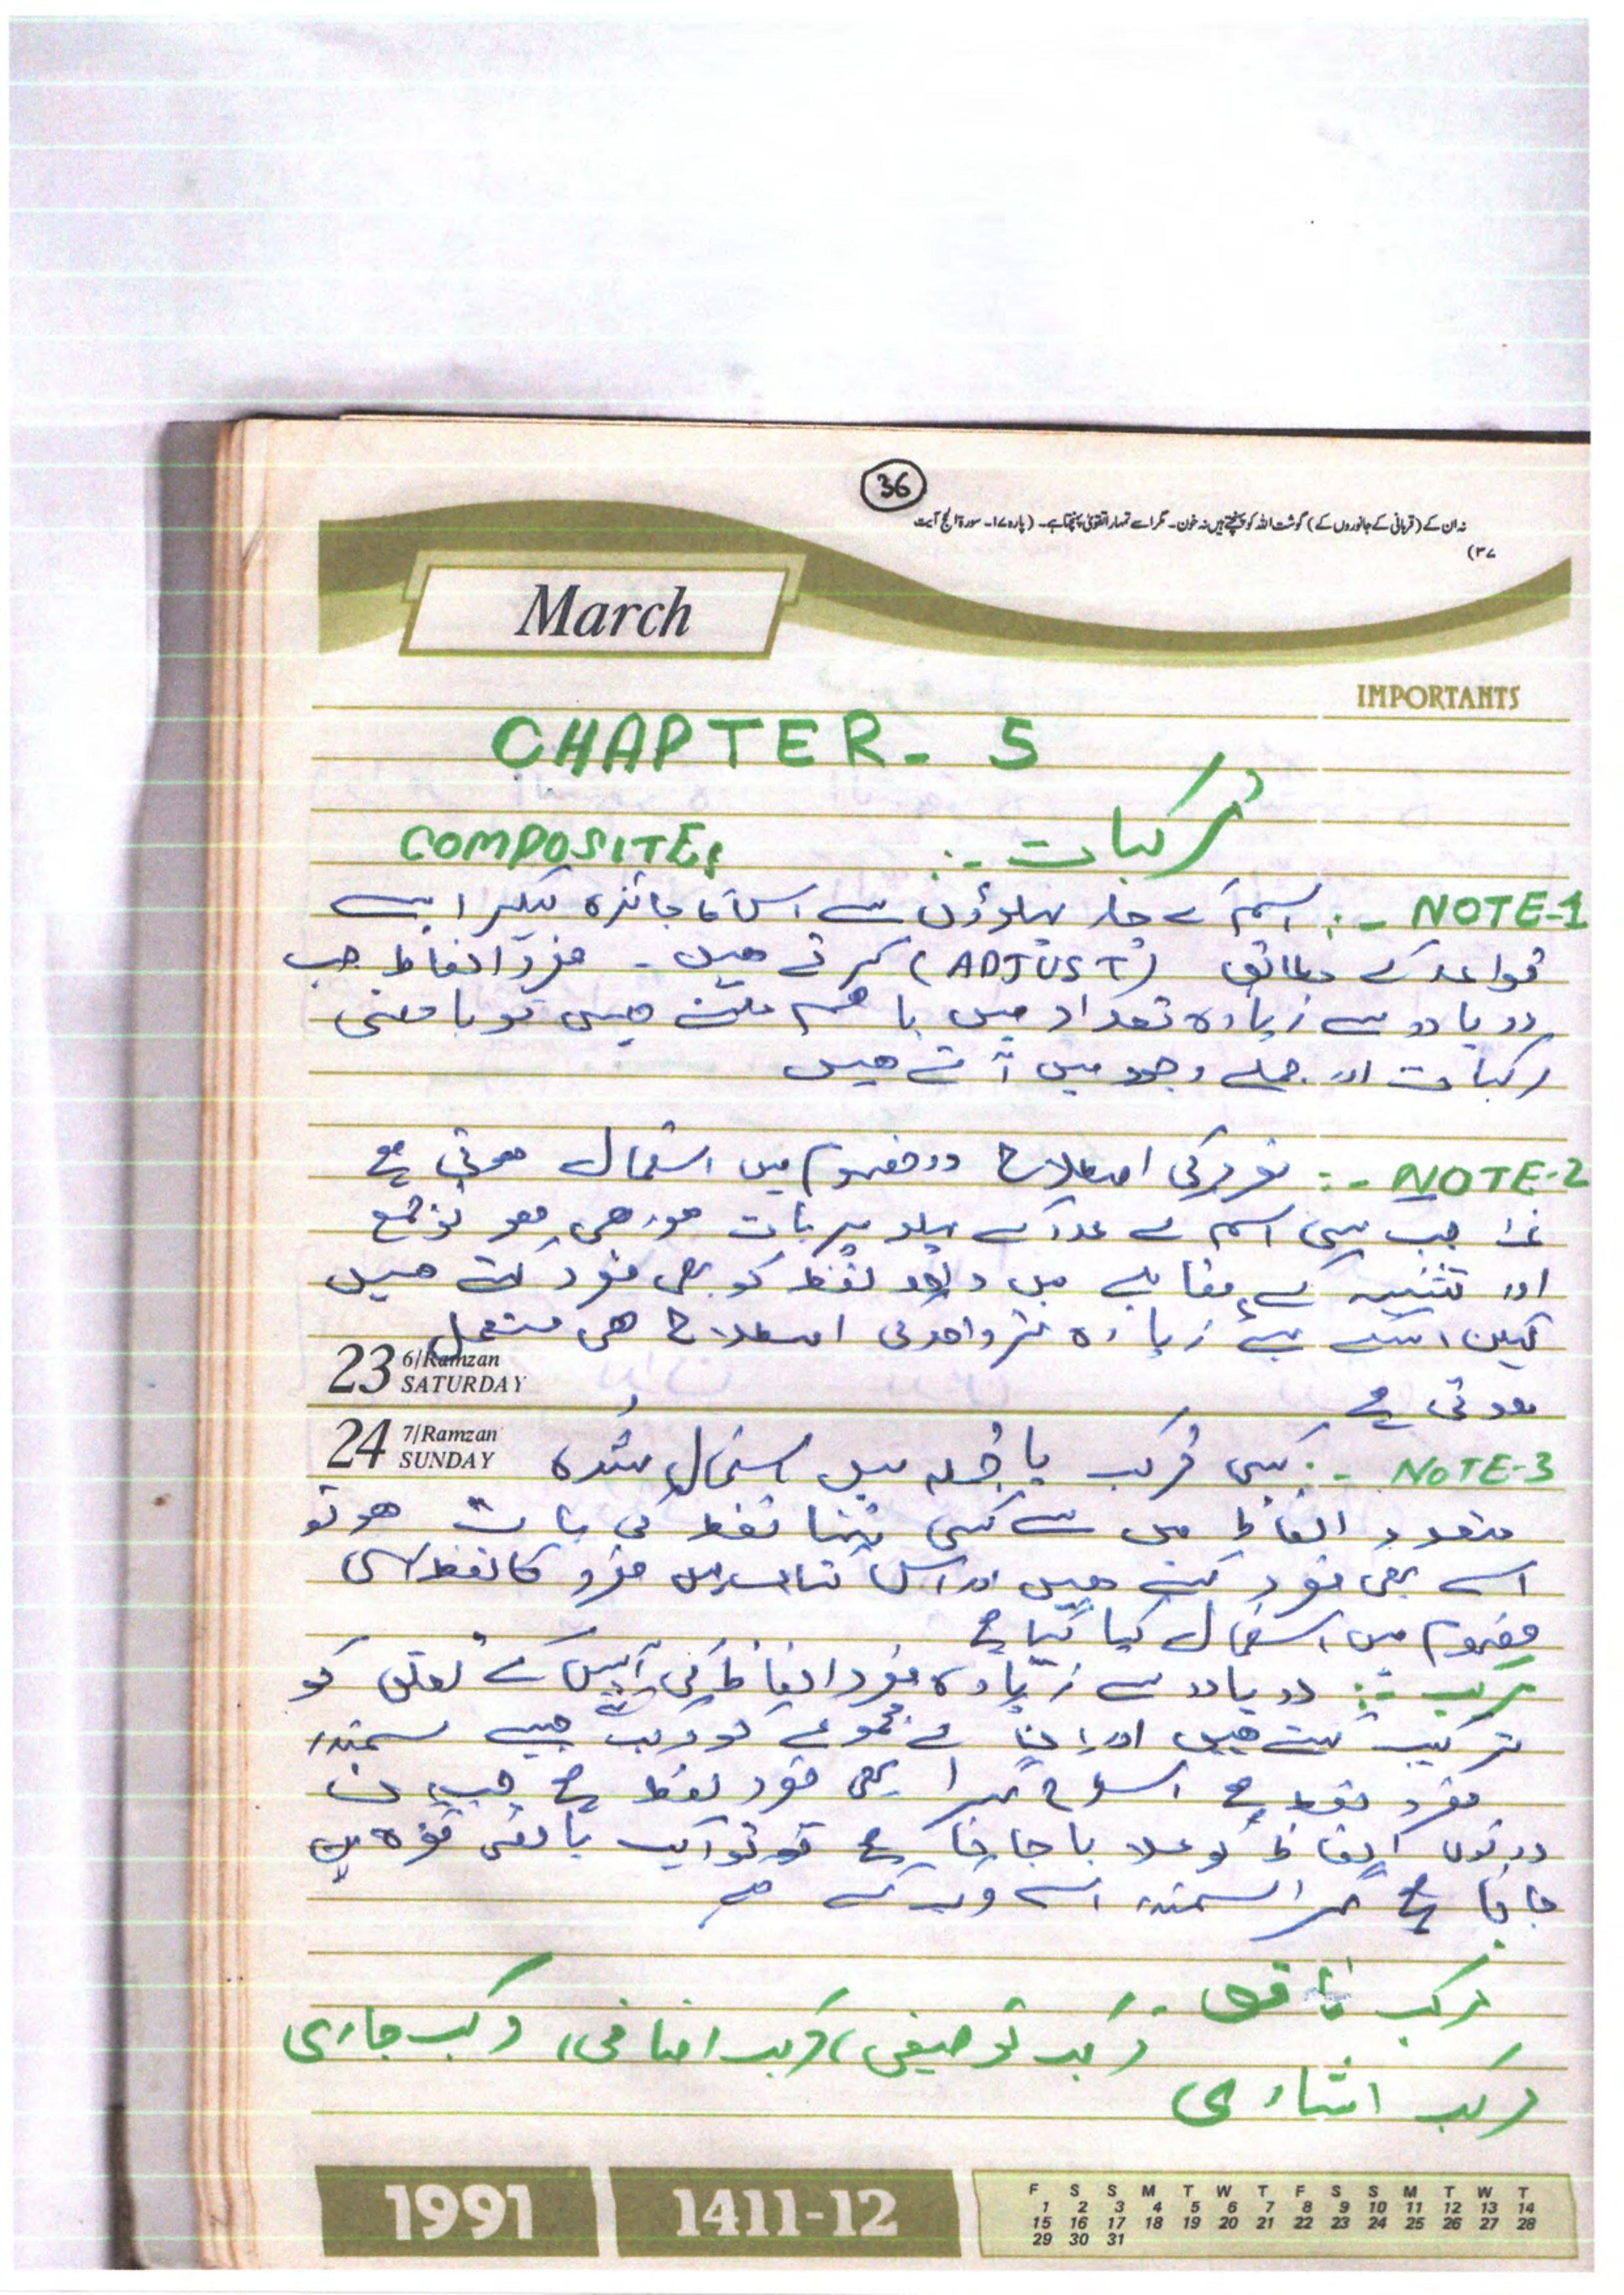 36
نہ ان کے (قربانی کے جانوروں کے) گوشت اللہ کو پہنچتے ہیں نہ خون۔ مگر اسے تمہارا تقویٰ پہنچتا ہے۔ (پارہ ۱۷۔ سورۃ الحج آیت
۳۷)
March
IMPORTANTS
CHAPTER - 5
مرکبات :-
COMPOSITE:
NOTE-1 :- اسم کے چار پہلوؤں سے اسکا جائزہ لیکر اسے
قواعد کے مطابق (ADJUST) کرتے ھیں - مفرد الفاظ جب
دو یا دو سے زیادہ تعداد میں باھم ملتے ھیں تو بامعنی
مرکبات اور جملے وجود میں آتے ھیں
NOTE-2 :- مفرد کی اصطلاح دو مفہوم میں استعمال ھوتی ہے
جب کسی اسم کے عدد کے پہلو پر بات ھو رھی ھو تو جمع
اور تثنیہ کے مقابلے میں واحد لفظ کو بھی مفرد کہتے ھیں
لیکن اسکے لئے زیادہ تر واحد کی اصطلاح ھی مستعمل
23 6/Ramzan
SATURDAY
ھوتی ہے
24 7/Ramzan
SUNDAY
NOTE-3 :- کسی مرکب یا جملہ میں استعمال شدہ
متعدد الفاظ میں سے کسی تنہا لفظ کی بات ھو تو
اسے بھی مفرد کہتے ھیں اور اس کتاب میں مفرد کا لفظ اسی
مفہوم میں استعمال کیا گیا ہے
مرکب :- دو یا دو سے زیادہ مفرد الفاظ کی آپس کے تعلق کو
ترکیب کہتے ھیں اور ان کے مجموعے کو مرکب جیسے سمندر
مفرد لفظ ہے اسطرح گہرا بھی مفرد لفظ ہے جب ان
دونوں الفاظ کو ملایا جاتا ہے تو ایک بامعنی فقرہ بن
جاتا ہے گہرا سمندر اسے مرکب کہتے
مرکب ناقص -
مرکب توصیفی، مرکب اضافی، مرکب جاری
مرکب اشاری
1991
1411-12
F S S M T W T F S S M T W T
1 2 3 4 5 6 7 8 9 10 11 12 13 14
15 16 17 18 19 20 21 22 23 24 25 26 27 28
29 30 31